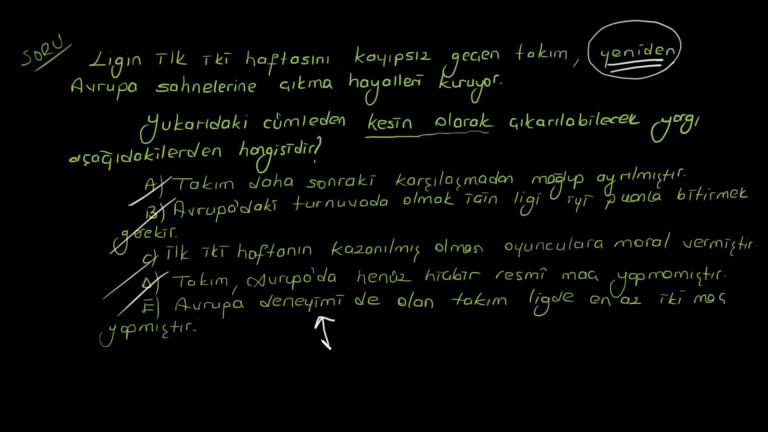 SORU
Ligin ilk iki haftasını kayıpsız geçen takım, yeniden
Avrupa sahnelerine çıkma hayalleri kuruyor.
Yukarıdaki cümleden kesin olarak çıkarılabilecek yargı
aşağıdakilerden hangisidir?
A) Takım daha sonraki karşılaşmadan mağlup ayrılmıştır.
B) Avrupa'daki turnuvada olmak için ligi iyi puanla bitirmek
gerekir.
C) İlk iki haftanın kazanılmış olması oyunculara moral vermiştir.
D) Takım, Avrupa'da henüz hiçbir resmi maç yapmamıştır.
E) Avrupa deneyimi de olan takım ligde en az iki maç
yapmıştır.